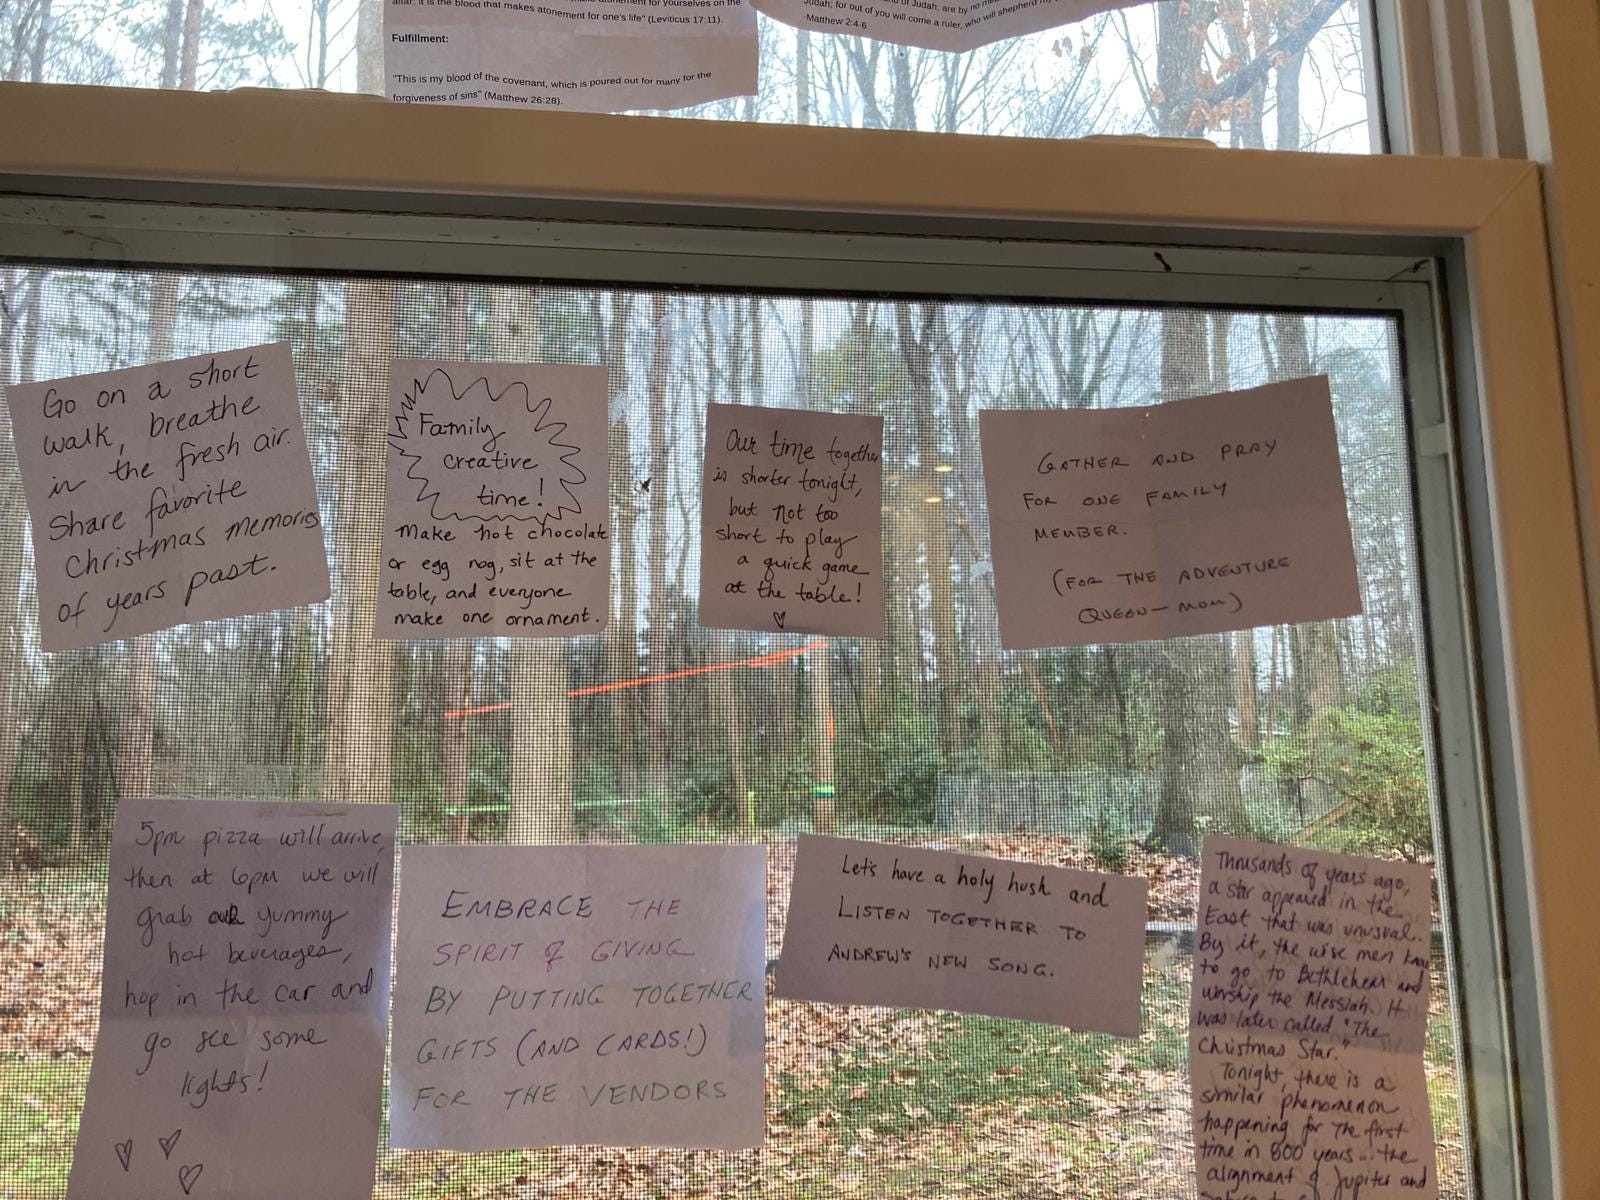 altar; it is the blood that makes atonement for one's life" (Leviticus 17:11).
Fulfillment:
"This is my blood of the covenant, which is poured out for many for the
forgiveness of sins" (Matthew 26:28).
of Judah, are by no
Judah; for out of you will come a ruler, who will shepherd my
-Matthew 2:4-6
Go on a short
walk, breathe
in the fresh air.
Share favorite
Christmas memories
of years past.
Family
creative
time!
Make hot chocolate
or egg nog, sit at the
table, and everyone
make one ornament.
Our time together
is shorter tonight,
but not too
short to play
a quick game
at the table!
GATHER AND PRAY
FOR ONE FAMILY
MEMBER.
(FOR THE ADVENTURE
QUEEN - MOM)
5pm pizza will arrive,
then at 6pm we will
grab our yummy
hot beverages,
hop in the car and
go see some
lights!
EMBRACE THE
SPIRIT of GIVING
BY PUTTING TOGETHER
GIFTS (AND CARDS!)
FOR THE VENDORS
Let's have a holy hush and
LISTEN TOGETHER TO
ANDREW'S NEW SONG.
Thousands of years ago,
a star appeared in the
East that was unusual.
By it, the wise men knew
to go to Bethlehem and
worship the Messiah. It
was later called "The
Christmas Star."
Tonight, there is a
similar phenomenon
happening for the first
time in 800 years... the
alignment of Jupiter and